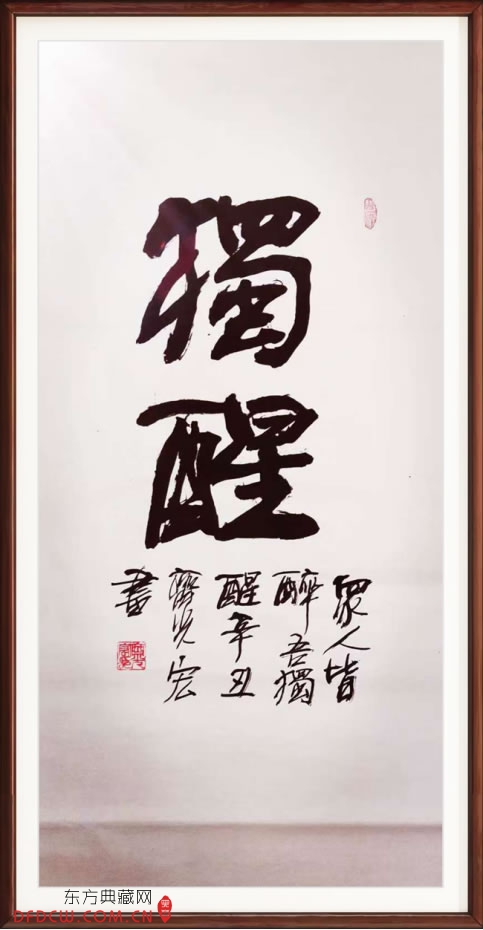 獨
醒
眾人皆
醉吾獨
醒辛丑
宏
書
东方典藏网
DFDCW.COM.CN